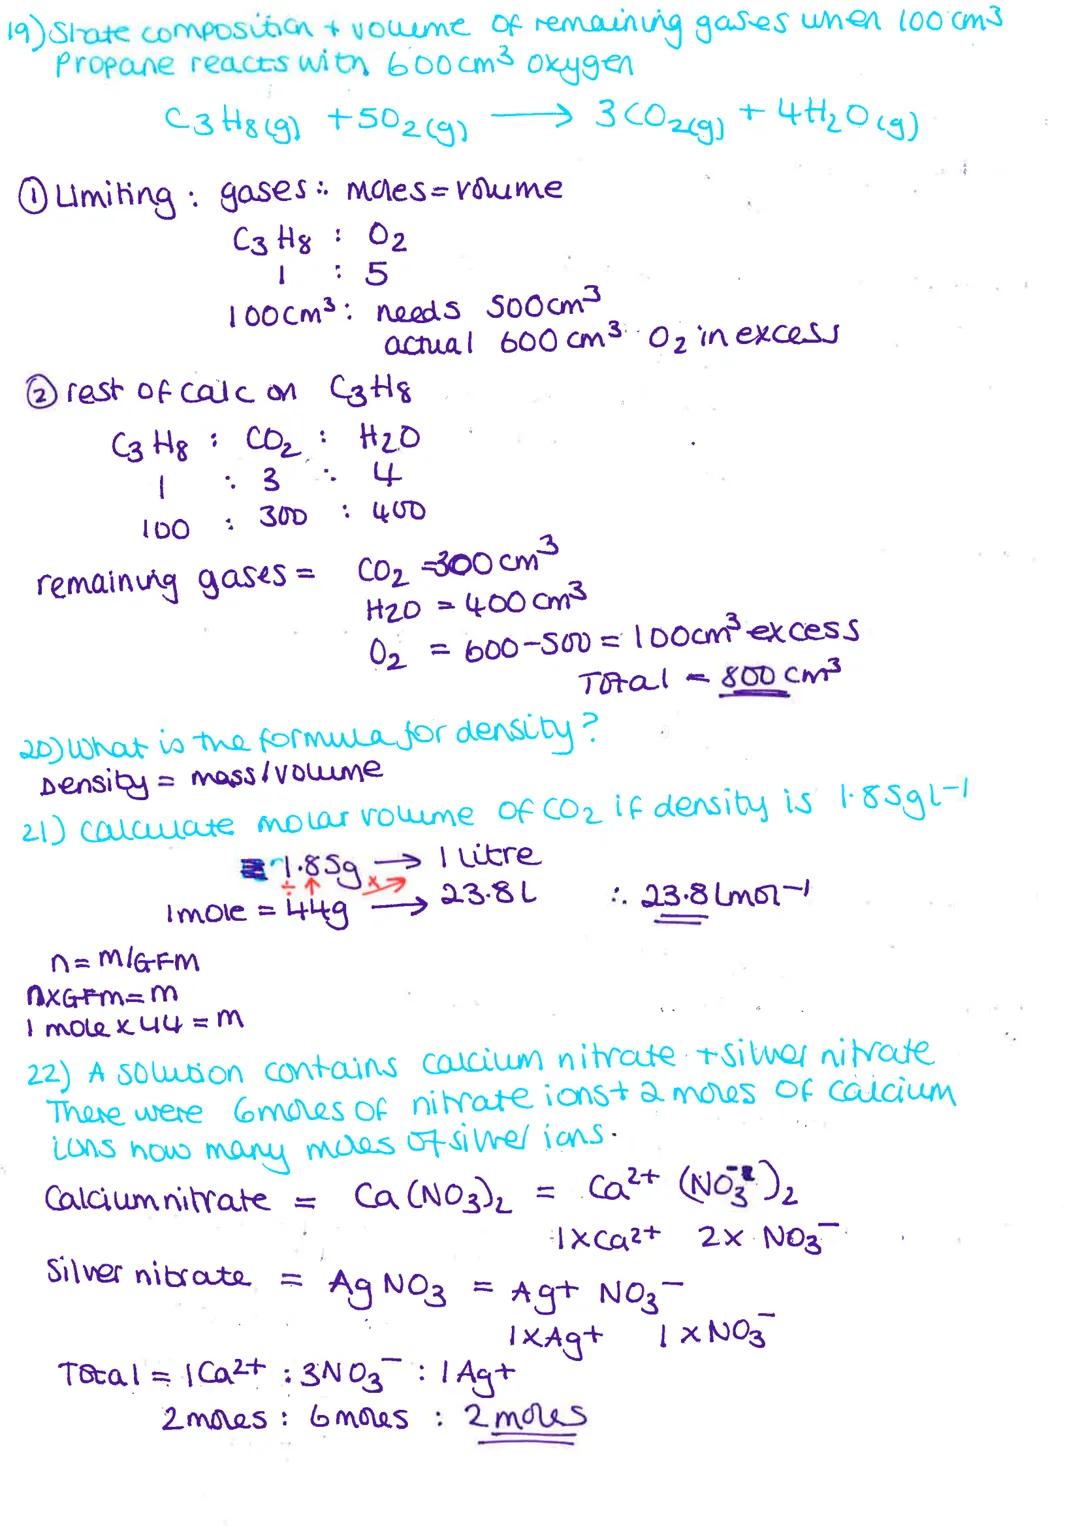 19) State composition + volume of remaining gases when 100cm³
Propane reacts with 600cm³ oxygen
C₃H₈(g) + 5O₂(g) → 3CO₂(g) + 4H₂O(g)
① Limiting : gases ∴ moles = volume
C₃H₈ : O₂
1 : 5
100cm³ : needs 500cm³
actual 600cm³ ∴ O₂ in excess
② rest of calc on C₃H₈
C₃H₈ : CO₂ : H₂O
1 : 3 : 4
100 : 300 : 400
remaining gases = CO₂ = 300cm³
H₂O = 400cm³
O₂ = 600-500 = 100cm³ excess
Total = 800cm³
20) What is the formula for density?
Density = mass/volume
21) Calculate molar volume of CO₂ if density is 1.85gL-1
1.85g → 1 litre
÷ ↑ x
1mole = 44g → 23.8L ∴ 23.8Lmol-1
n = m/GFM
nxGFM = m
1 mole x 44 = m
22) A solution contains calcium nitrate + silver nitrate
There were 6moles of nitrate ions + 2 moles of calcium
ions how many moles of silver ions.
Calcium nitrate = Ca(NO₃)₂ = Ca²⁺ (NO₃⁻)₂
1xCa²⁺ 2x NO₃⁻
Silver nitrate = AgNO₃ = Ag+ NO₃⁻
1xAg+ 1xNO₃⁻
Total = 1Ca²⁺ : 3NO₃⁻ : 1Ag+
2moles : 6moles : 2moles